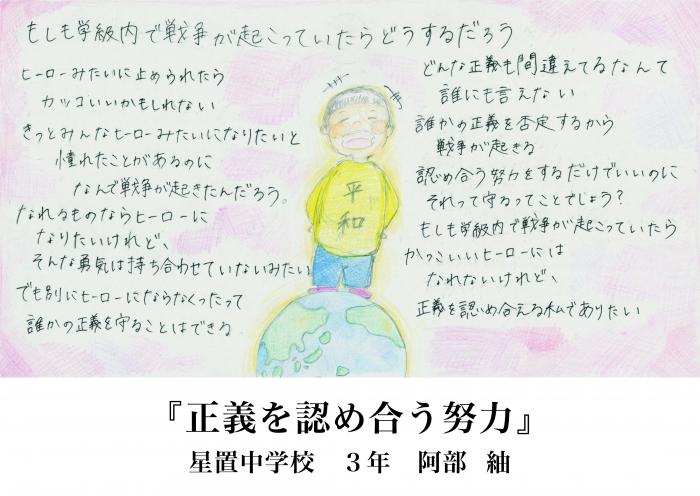 もしも学級内で戦争が起こっていたらどうするだろう
ヒーローみたいに止められたら
カッコいいかもしれない
きっとみんなヒーローみたいになりたいと
憧れたことがあるのに
なんで戦争が起きたんだろう。
なれるものならヒーローに
なりたいけれど、
そんな勇気は持ち合わせていないみたい
でも別にヒーローにならなくたって
誰かの正義を守ることはできる
平
和
どんな正義も間違えてるなんて
誰にも言えない
誰かの正義を否定するから
戦争が起きる
認め合う努力をするだけでいいのに
それって守るってことでしょう?
もしも学級内で戦争が起こっていたら
かっこいいヒーローには
なれないけれど、
正義を認め合える私でありたい
『正義を認め合う努力』
星置中学校 3年 阿部 紬